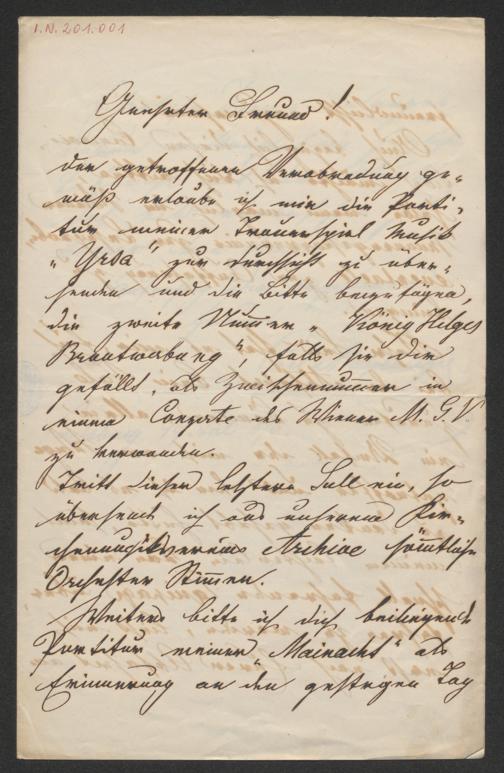 I.N. 201.001
Geehrter Freund!
der getroffenen Verabredung ge-
mäß erlaube ich mir die Parti-
tur meiner Trauerspiel Musik
„Yrsa" zur Durchsicht zu über-
senden und die Bitte beizufügen,
die zweite Nummer „König Helges
Brautwerbung", falls sie dir
gefällt, als Zwischennummer in
einem Conzerte des Wiener M. G. V.
zu verwenden.
Tritt dieser letztere Fall ein, so
übersende ich aus unserem Kir-
chenmusikvereins Archive sämtliche
Orchester Stimmen.
Weiters bitte ich dich beiliegende
Partitur meiner „Mainacht" als
Erinnerung an den gestrigen Tag